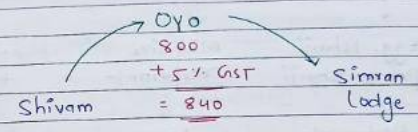 OYO
800
+ 5% GST
= 840
Shivam
Simran
Lodge